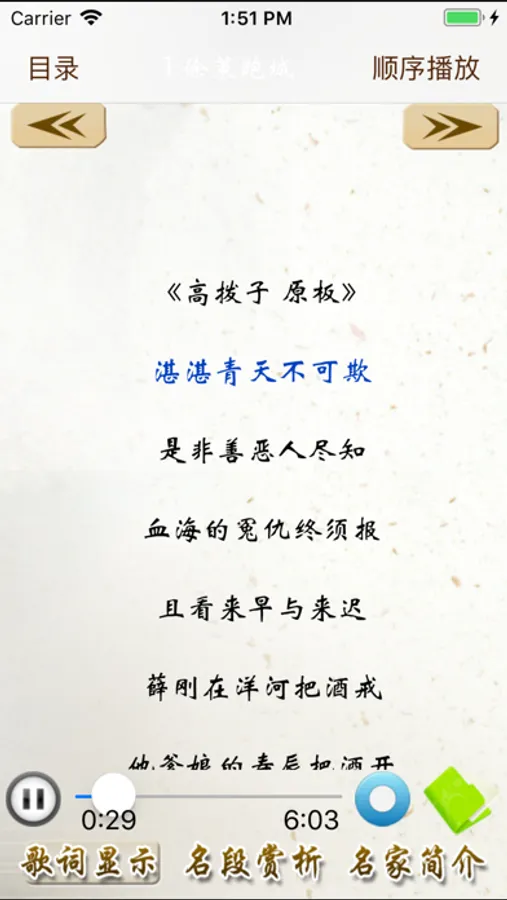 Carrier 1:51 PM
目录 1 徐策跑城 顺序播放
《高拨子 原板》
湛湛青天不可欺
是非善恶人尽知
血海的冤仇终须报
且看来早与来迟
薛刚在洋河把酒戒
他爹娘的寿辰把酒开
0:29 6:03
歌词显示 名段赏析 名家简介